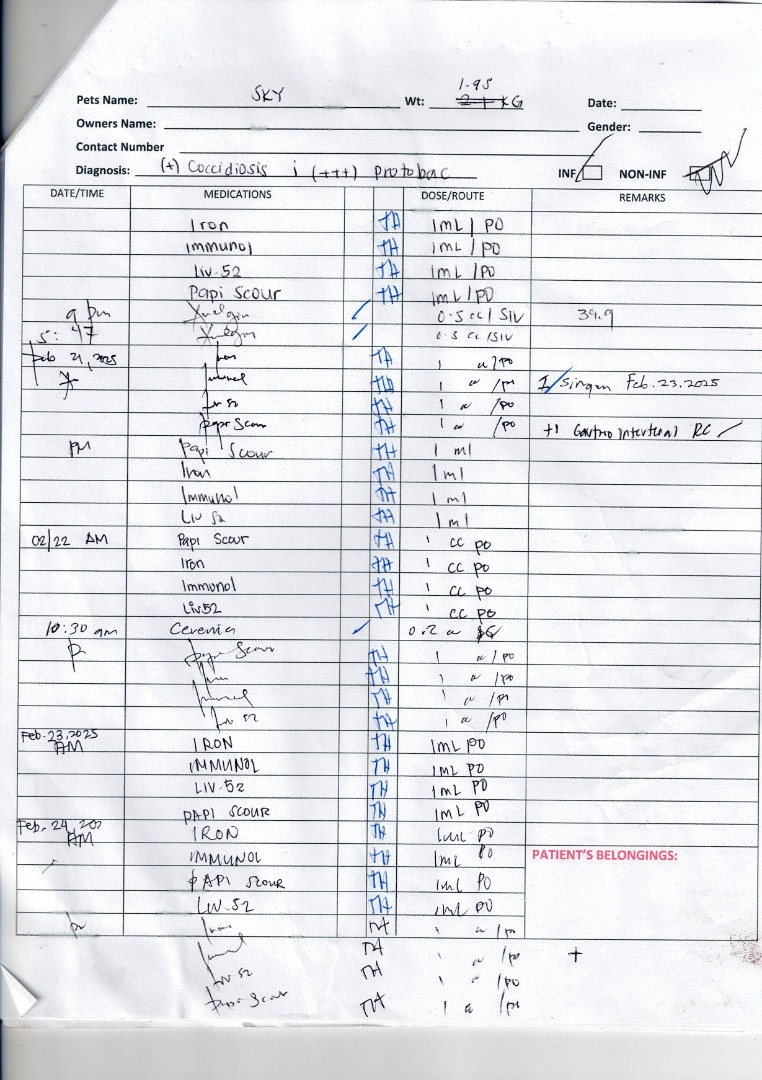 1.95
Pets Name: SKY Wt: KG Date:
Owners Name: Gender:
Contact Number
Diagnosis: (+) Coccidiosis ; (+++) protobac INF NON-INF
DATE/TIME MEDICATIONS DOSE/ROUTE REMARKS
Iron TH 1mL / PO
Immunol TH 1mL / PO
Liv.52 TH 1mL / PO
Papi Scour TH 1mL / PO
9 pm 0.5 cc / SIV 39.9
5:47 0.5 cc /SIV
Feb 21, 2025 Iron TH 1 /po
TH 1 /po Feb.23.2025
52 TH 1 /po
papi Scour TH 1 /po +1 Gastro Intestinal RC
PM Papi Scour TH 1 ml
Iron TH 1ml
Immunol TH 1 ml
Liv 52 TH 1 ml
02/22 AM Papi Scour TH 1 cc po
Iron TH 1 cc po
Immunol TH 1 cc po
Liv52 TH 1 cc po
10:30 am Cerenia 0.2
papi Scour TH 1 /po
TH 1 /po
TH 1 /po
52 TH 1 /po
Feb.23.2025
AM IRON TH 1mL PO
IMMUNOL TH 1mL PO
LIV.52 TH 1mL PO
PAPI SCOUR TH 1mL PO
Feb. 24, 202
AM IRON TH 1mL PO
IMMUNOL TH 1mL PO PATIENT'S BELONGINGS:
PAPI SCOUR TH 1mL PO
LIV.52 TH 1mL PO
Iron TH 1 /po
TH 1 /po
52 TH 1 /po
Papi Scour TH 1 /po